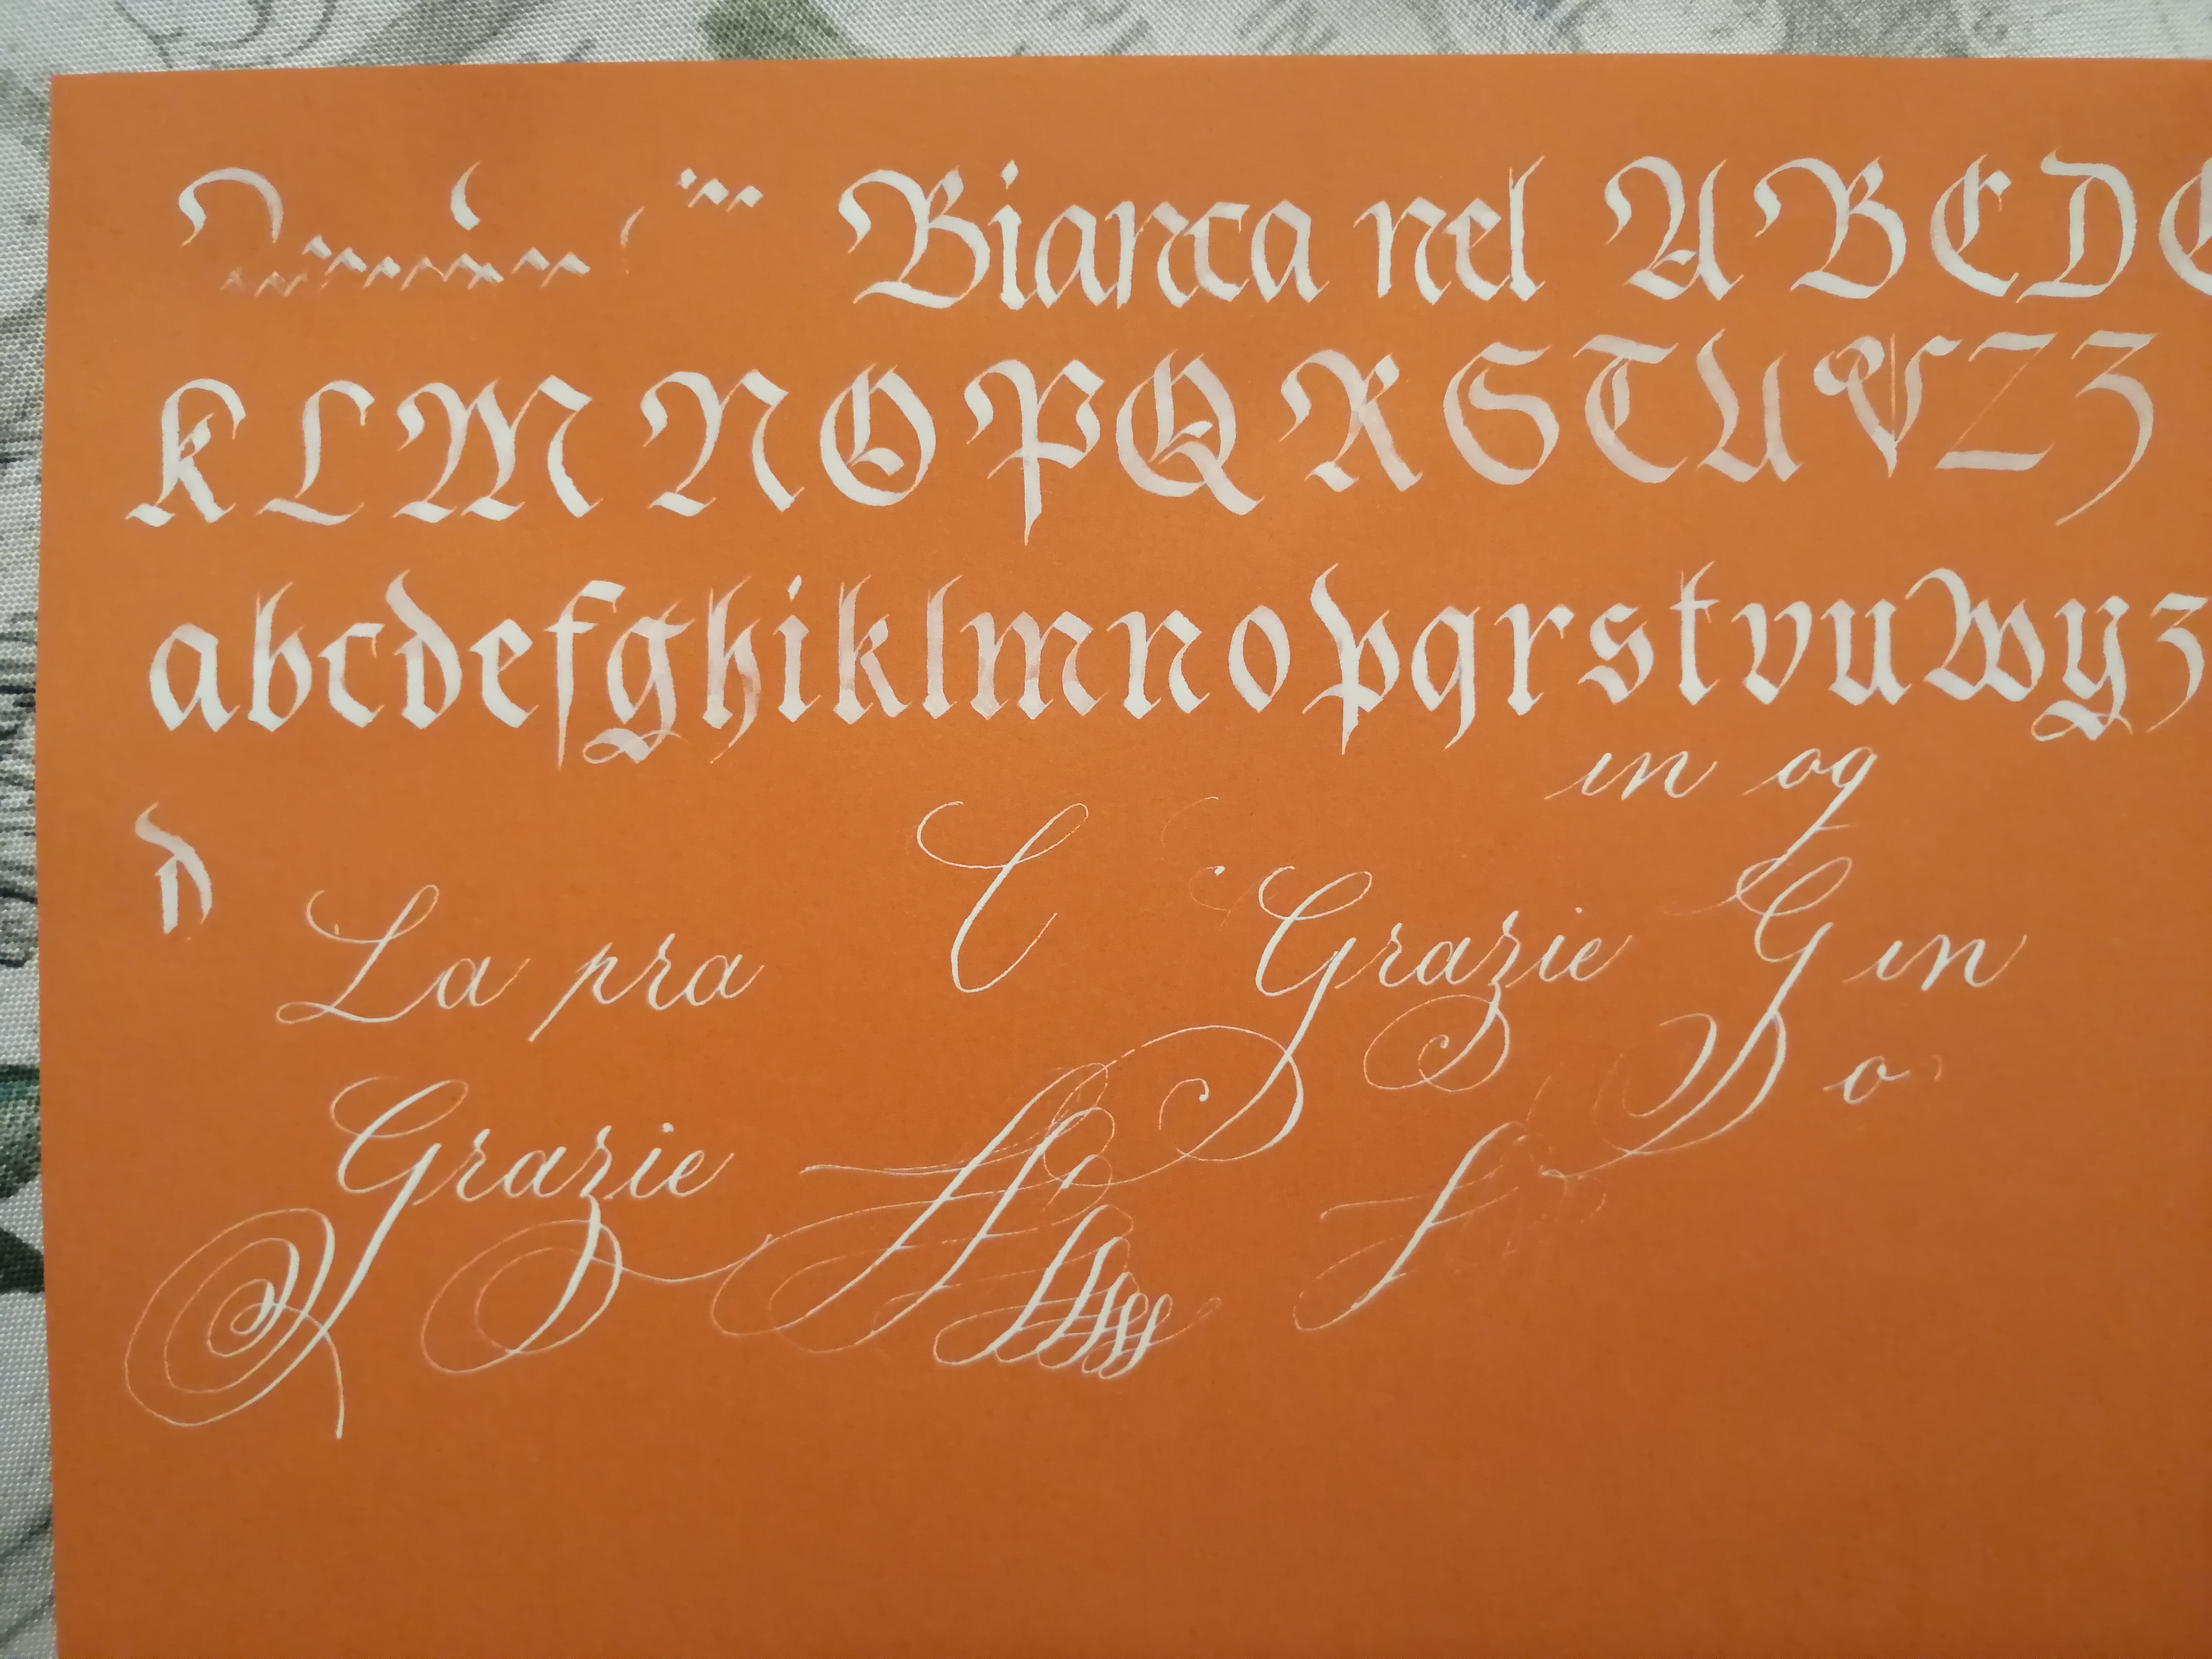 Bianca nel A B C D
K L M N O P Q R S T U V Z Z
abcdefghiklmnopqrstvuwyz
in og
d La pra C Grazie G in
o
Grazie